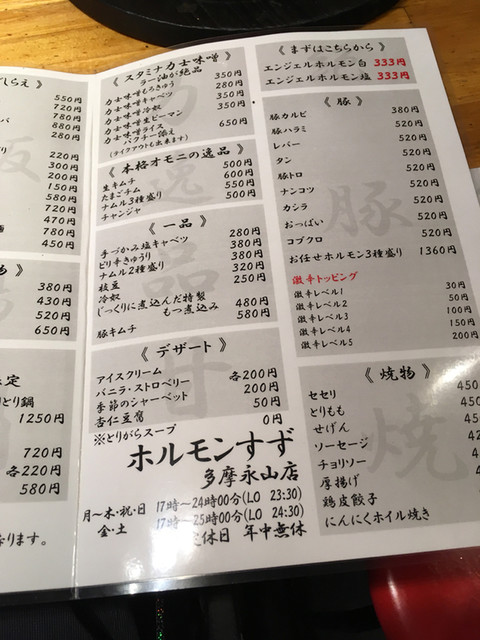 ごしらえ 》
550円
720円
780円
280円
880円
220円
300円
200円
150円
580円
720円
470円
780円
450円
物 》
380円
430円
520円
650円
定
とり鍋
1250円
720円
各220円
580円
おります。
《 スタミナ力士味噌 》
ラー油が絶品
力士味噌もろきゅう 350円
力士味噌キャベツ 280円
力士味噌冷奴 350円
力士味噌生ピーマン 350円
力士味噌ライス
パクチー添え 650円
(テイクアウトも出来ます)
《 本格オモニの逸品 》
生キムチ 500円
たまごチム 600円
ナムル3種盛り 550円
チャンジャ 500円
《 一品 》
手づかみ塩キャベツ 280円
ピリ辛きゅうり 380円
ナムル2種盛り 380円
枝豆 320円
冷奴 250円
じっくりに煮込んだ特製
もつ煮込み 480円
豚キムチ 580円
《 デザート 》
アイスクリーム
バニラ・ストロベリー 各200円
季節のシャーベット 200円
杏仁豆腐 50円
※とりがらスープ 0円
ホルモンすず
多摩永山店
月〜木・祝・日 17時〜24時00分(LO 23:30)
金・土 17時〜25時00分(LO 24:30)
定休日 年中無休
《 まずはこちらから 》
エンジェルホルモン白 333円
エンジェルホルモン塩 333円
《 豚 》
豚カルビ 380円
豚ハラミ 520円
レバー 520円
タン 520円
豚トロ 520円
ナンコツ 520円
カシラ 520円
おっぱい 520円
コブクロ 520円
お任せホルモン3種盛り 1360円
激辛トッピング
激辛レベル1 30円
激辛レベル2 50円
激辛レベル3 100円
激辛レベル4 150円
激辛レベル5 200円
《 焼物 》
セセリ 450
とりもも 450
せげん 450
ソーセージ
チョリソー
厚揚げ
鶏皮餃子
にんにくホイル焼き